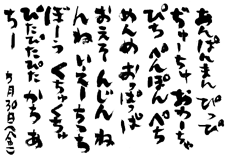 あんぱんまん ぴっぴ
ぢゅーちゅ おわーちゃ
ぴち ぺんぽん ぺち
めんめ おっぱっぱ
おえそ んじん ね
んね いえーちっち
ぼーう くちゃくちゃ
ぴたぴたぴた かち あ
ちー 5月30日(金)